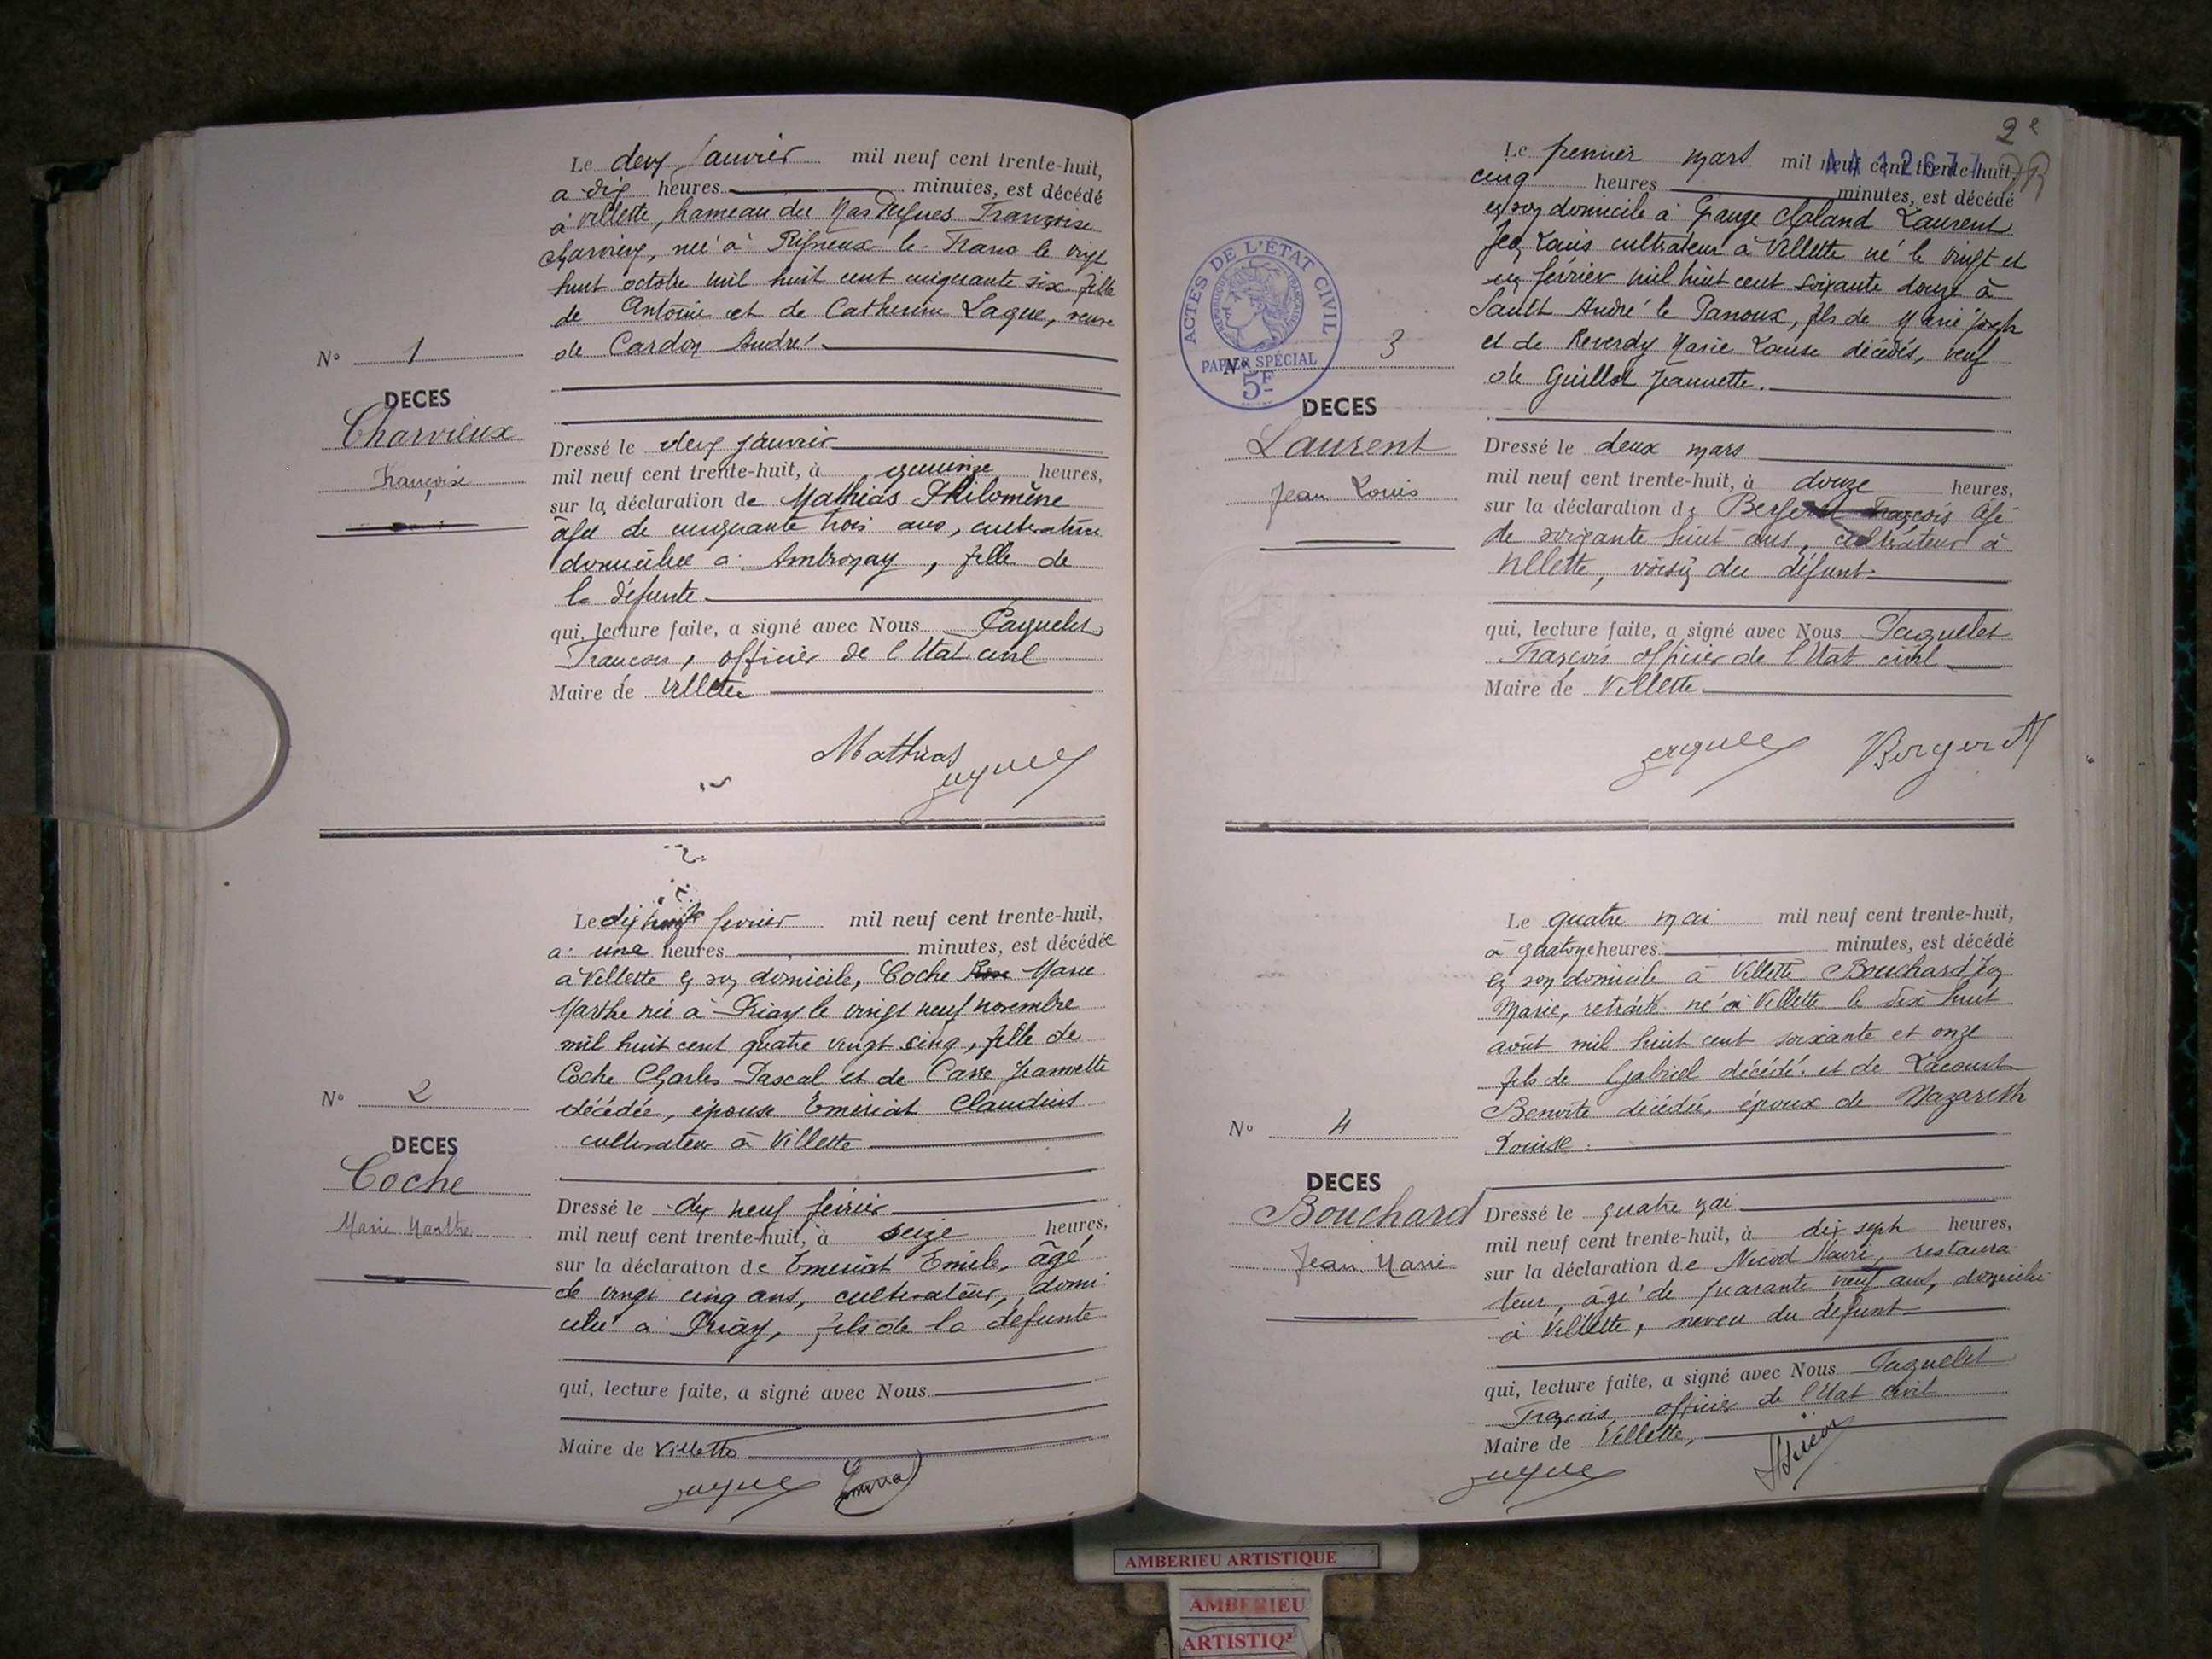 Le deux janvier mil neuf cent trente-huit,
a dix heures minutes, est décédé
à Villette, hameau du Mas Françoise
née à Rignieux le Franc le vingt
huit octobre mil huit cent cinquante six fille
de Antoine et de Catherine Lague, veuve
de Cardon André
N° 1
DECES
Charvieux
Françoise
Dressé le deux janvier
mil neuf cent trente-huit, à quinze heures,
sur la déclaration de Mathias Philomène
âgée de cinquante trois ans, cultivatrice
domiciliée à Ambronay, fille de
la défunte
qui, lecture faite, a signé avec Nous Paquelet
François, officier de l'Etat civil
Maire de Villette
Mathias
Le dix février mil neuf cent trente-huit,
a une heures minutes, est décédée
à Villette en son domicile, Coche Marie
Marthe née à Priay le vingt neuf novembre
mil huit cent quatre vingt cinq, fille de
Coche Charles Pascal et de Carre Jeannette
décédée, épouse Emeriat Claudius
cultivateur à Villette
N° 2
DECES
Coche
Marie Marthe
Dressé le dix neuf février
mil neuf cent trente-huit, à seize heures,
sur la déclaration de Emeriat Emile, âgé
de vingt cinq ans, cultivateur, domi
cilié à Priay, fils de la défunte
qui, lecture faite, a signé avec Nous
Maire de Villette
2e
Le premier mars mil neuf cent trente-huit,
cinq heures minutes, est décédé
en son domicile à Grange Laurent
Jean Louis cultivateur à Villette né le vingt et
un février mil huit cent soixante douze à
Saint André le Panoux, fils de Marie Joseph
et de Reverdy Marie Louise décédés, veuf
de Guillot Jeannette.
ACTES DE L'ÉTAT CIVIL
PAPIER SPÉCIAL
5F
N° 3
DECES
Laurent
Jean Louis
Dressé le deux mars
mil neuf cent trente-huit, à douze heures,
sur la déclaration de François âgé
de soixante huit ans, cultivateur à
Villette, voisin du défunt
qui, lecture faite, a signé avec Nous Paquelet
François officier de l'Etat civil
Maire de Villette
Bergerat
Le quatre mai mil neuf cent trente-huit,
à quatorze heures minutes, est décédé
en son domicile à Villette Bouchard Jean
Marie, retraité né à Villette le dix huit
août mil huit cent soixante et onze
fils de Gabriel décédé et de Lacourt
Benoite décédée, époux de Nazareth
Louise
N° 4
DECES
Bouchard
Jean Marie
Dressé le quatre mai
mil neuf cent trente-huit, à dix sept heures,
sur la déclaration de Nicod restaura
teur, âgé de quarante neuf ans, domicilié
à Villette, neveu du défunt
qui, lecture faite, a signé avec Nous Paquelet
François officier de l'Etat civil
Maire de Villette,
AMBERIEU ARTISTIQUE
AMBERIEU
ARTISTIQ